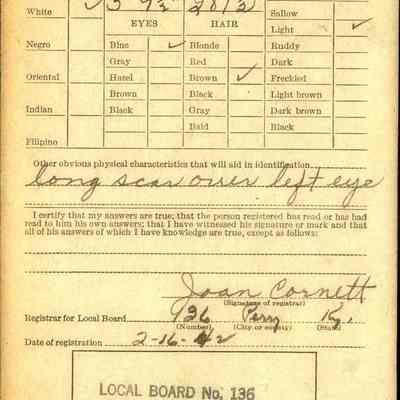 White ✓ 5 9½ 202 Sallow
EYES HAIR Light ✓
Negro Blue ✓ Blonde Ruddy
Gray Red Dark
Oriental Hazel Brown ✓ Freckled
Brown Black Light brown
Indian Black Gray Dark brown
Bald Black
Filipino
Other obvious physical characteristics that will aid in identification
long scar over left eye
I certify that my answers are true; that the person registered has read or has had
read to him his own answers; that I have witnessed his signature or mark and that
all of his answers of which I have knowledge are true, except as follows:
Joan Cornett
(Signature of registrar)
Registrar for Local Board 126 Perry Ky.
(Number) (City or county) (State)
Date of registration 2-16-42
LOCAL BOARD No. 136